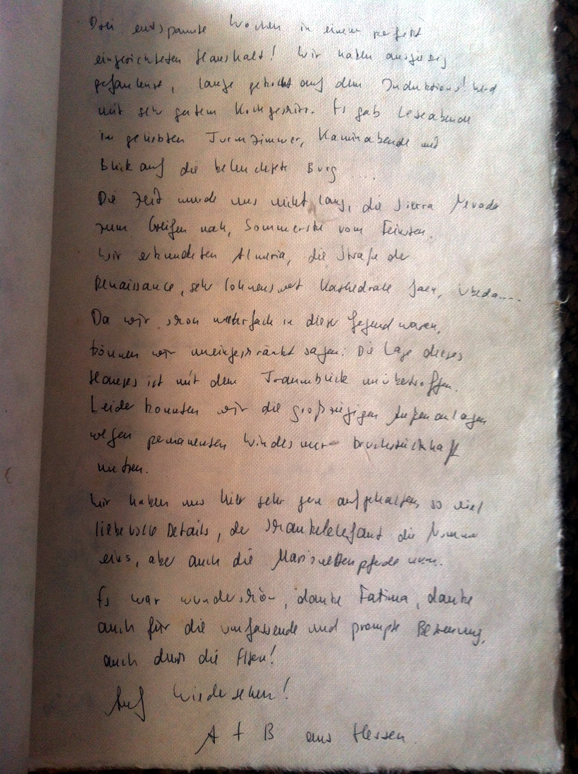 Drei entspannte Wochen in einem perfekt
eingerichteten Haushalt! Wir haben ausgiebig
gefaulenzt, lange gekocht auf dem Induktions!herd
mit sehr gutem Kochgeschirr. Es gab Leseabende
im geliebten Turmzimmer, Kaminabende mit
Blick auf die beleuchtete Burg ...
Die Zeit wurde uns nicht lang, die Sierra Nevada
zum Greifen nah, Sommerski vom Feinsten.
Wir erkundeten Almeria, die Straße der
Renaissance, sehr lohnenswert Kathedrale Jaen, Ubeda....
Da wir schon mehrfach in dieser Gegend waren,
können wir uneingeschränkt sagen: Die Lage dieses
Hauses ist mit dem Traumblick unübertroffen.
Leider konnten wir die großzügigen Außenanlagen
wegen permanenten Windes nur bruchstückhaft
nutzen.
Wir haben uns hier sehr gern aufgehalten, so viel
liebevolle Details, der Schaukelelefant die Nummer
eins, aber auch die Marionettenpferde
Es war wunderschön, danke Fatima, danke
auch für die umfassende und prompte Betreuung,
auch durch die
Auf Wiedersehen!
A + B aus Hessen.